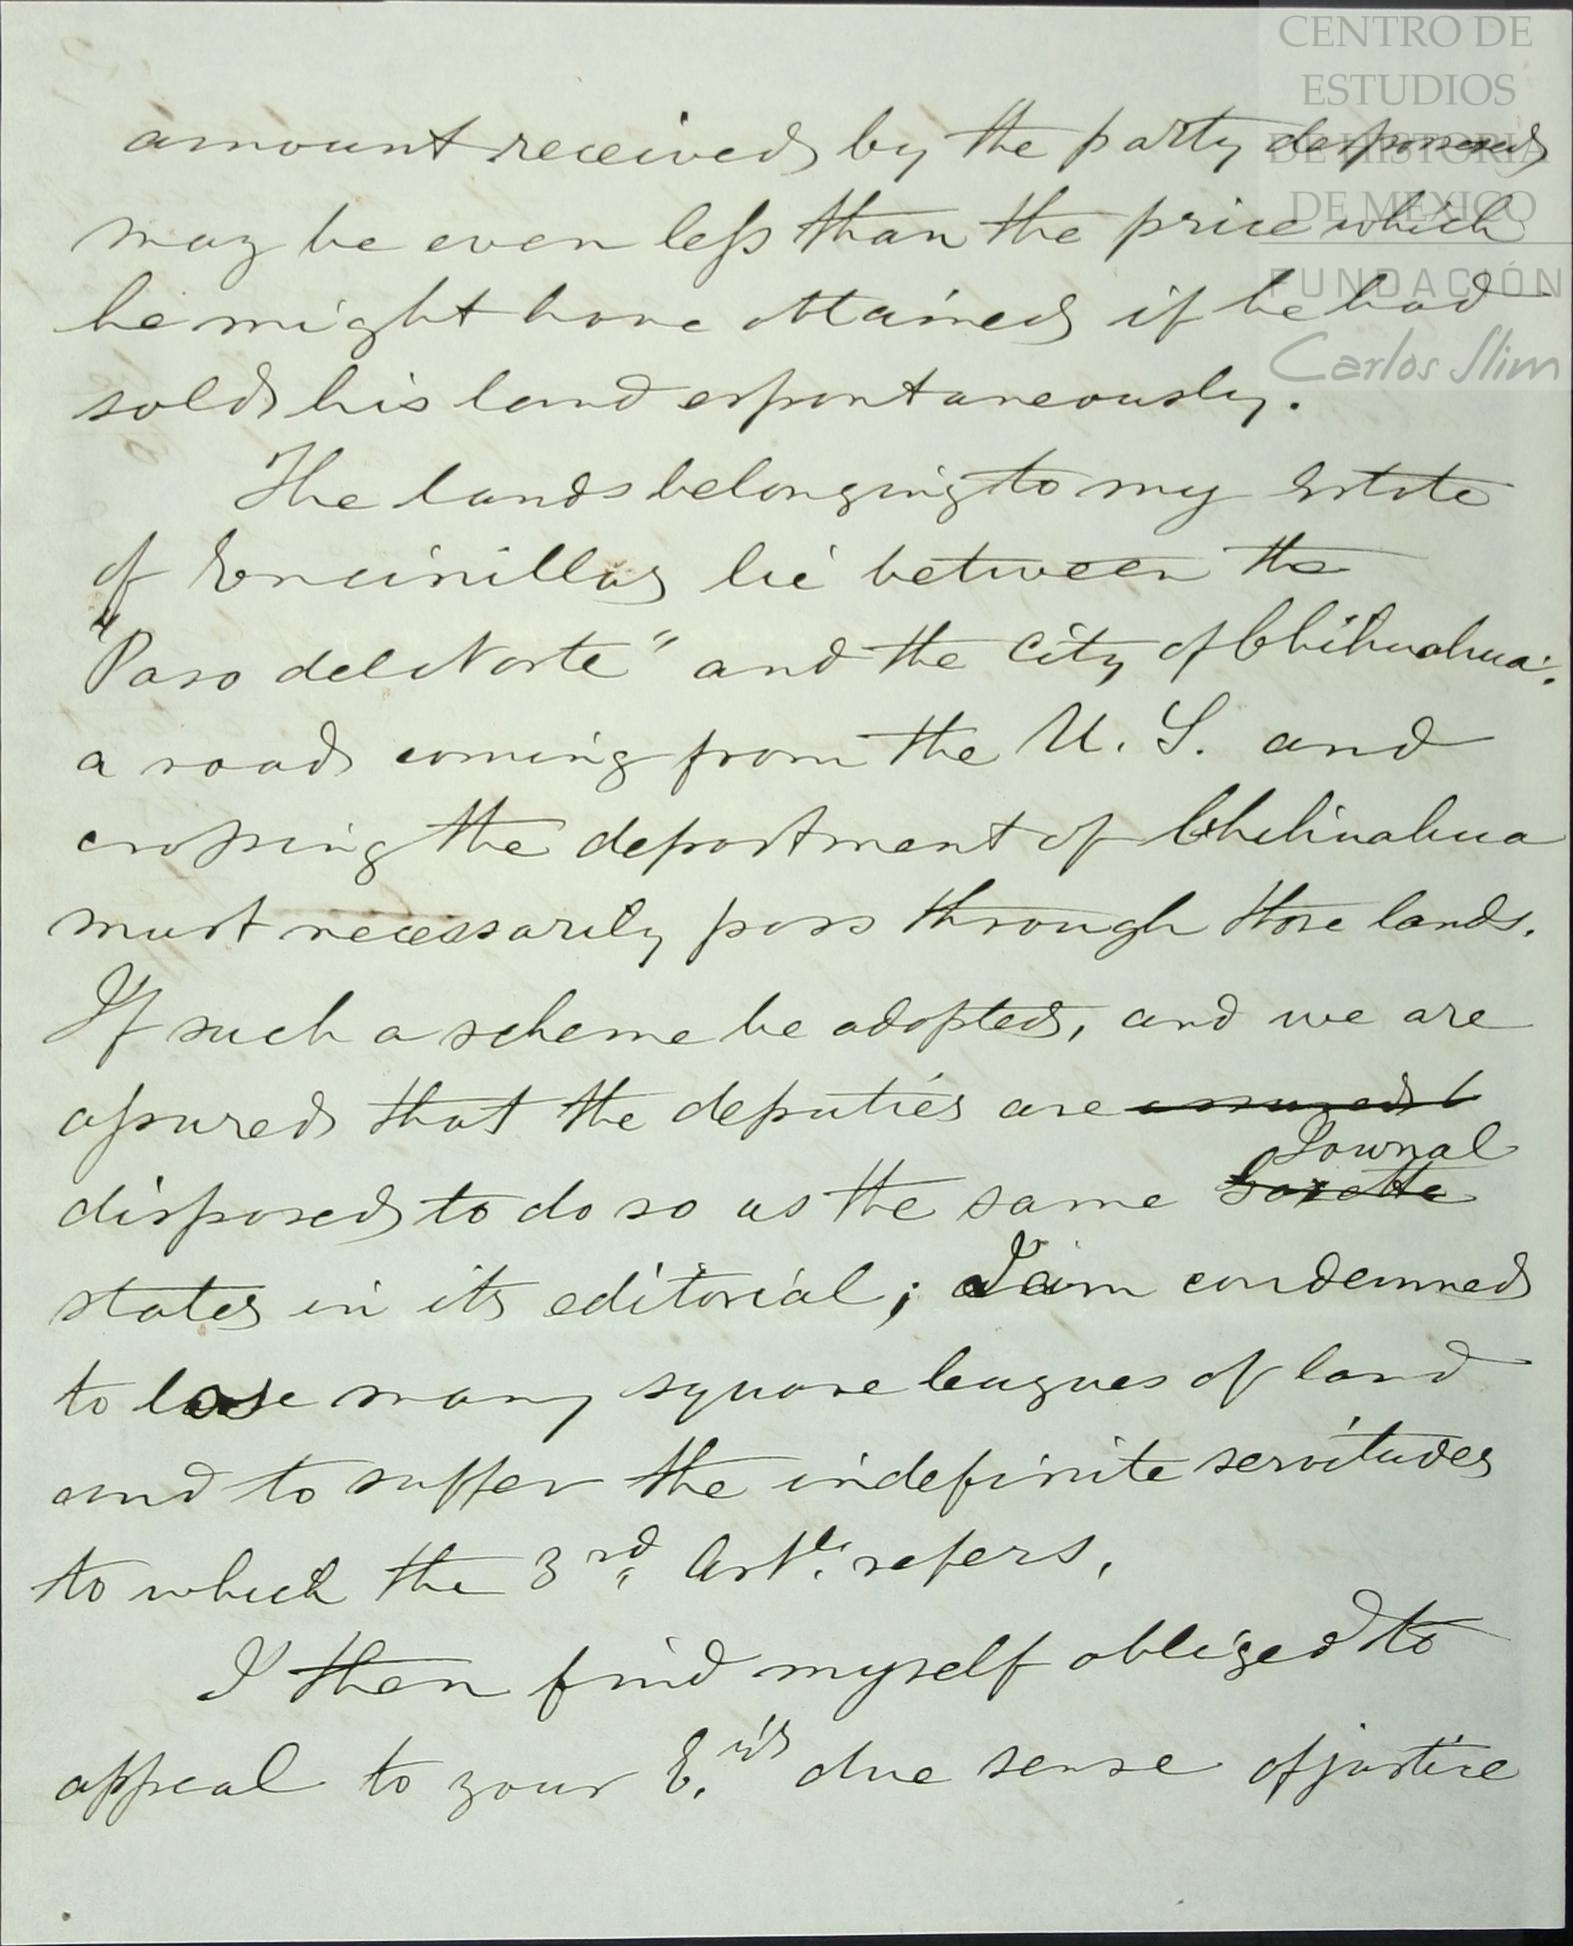 CENTRO DE
ESTUDIOS
DE HISTORIA
DE MÉXICO
FUNDACIÓN
Carlos Slim
amount received by the party
may be even less than the price which
he might have obtained if he had
sold his land espontaneously.
The lands belonging to my Estate
of Encinillas lie between the
"Paso del Norte" and the city of Chihuahua:
a road coming from the U. S. and
crossing the department of Chihuahua
must necessarily pass through those lands.
If such a scheme be adopted, and we are
assured that the deputies are
disposed to do so as the same Gazette Journal
states in its editorial; I am condemned
to lose many square leagues of land
and to suffer the indefinite servitudes
to which the 3rd. Artle. refers.
I then find myself obliged to
appeal to your E. due sense of justice